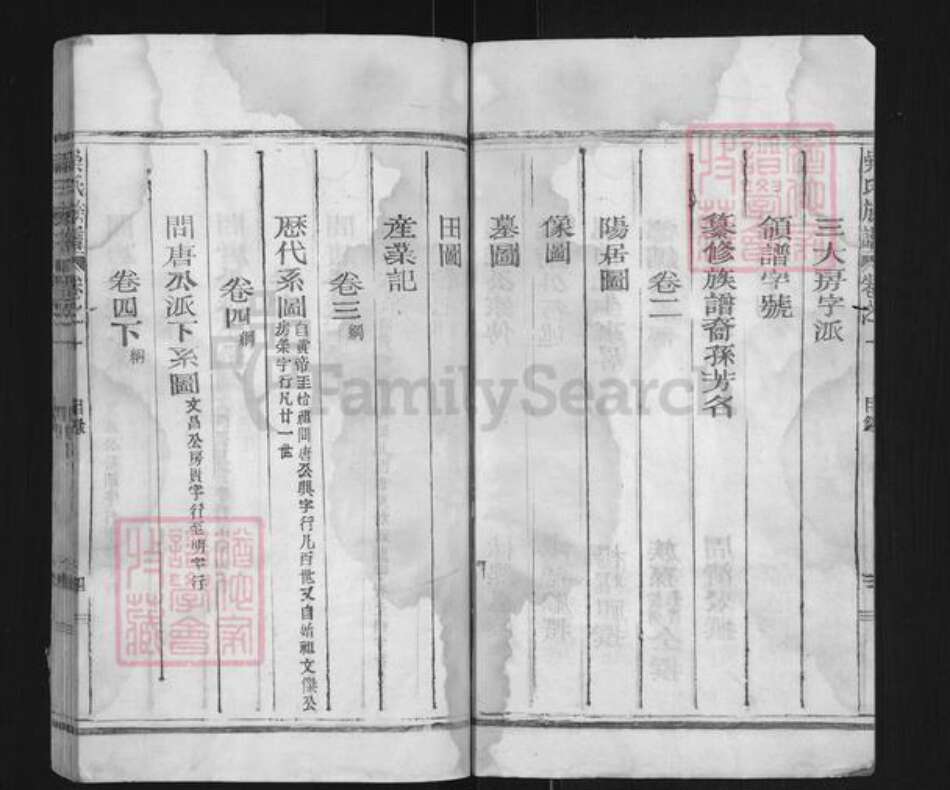 三大房字派
領譜字號
纂修族譜裔孫芳名
卷二
陽居圖
像圖
墓圖
田圖
產業記
卷三 綱
歷代系圖 自黃帝至始祖問唐公興字行凡百世又自始祖文傑公
房榮字行凡廿一世
卷四 綱
問唐公派下系圖 文昌公房 字行至明字行
卷四下 綱
吳氏族譜 卷之一 目錄
FamilySearch